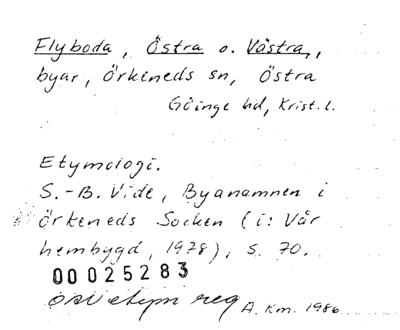 Flyboda, Östra o. Västra,
byar, Örkeneds sn, Östra
Göinge hd, Krist. l.
Etymologi.
S.-B. Vide, Byanamnen i
Örkeneds Socken (i: Vår
hembygd, 1978), s. 70.
00025283
etym reg A. Km. 1986